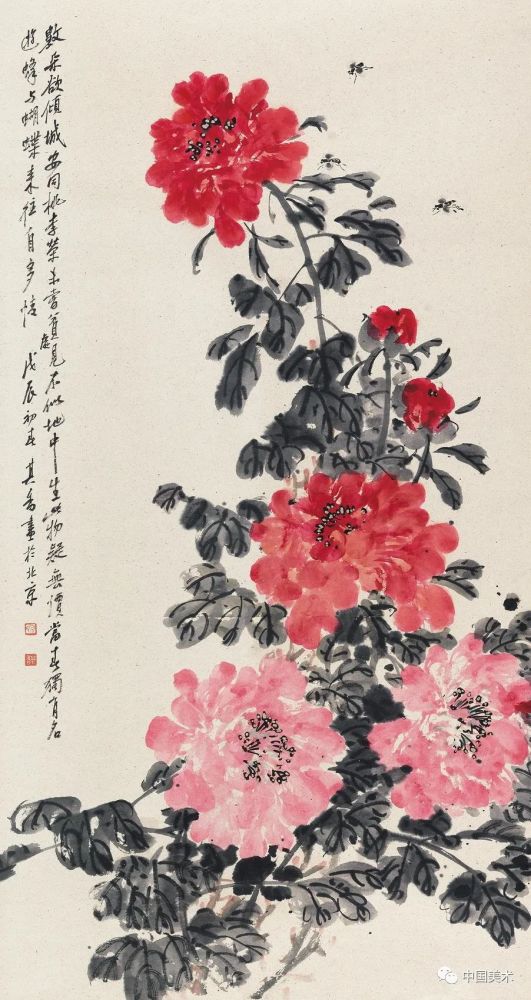 數朵欲傾城安同桃李榮未嘗貧處見不似地中生此物疑無價當春獨有名
遊蜂与蝴蝶来往自多情 戊辰初春其香畫於北京
中国美术